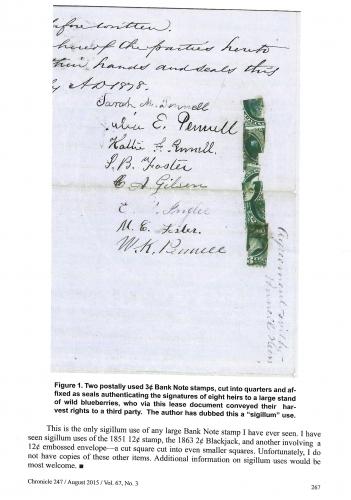 before written.
hereof the parties hereto
their hands and seals this
A.D. 1878.
Sarah M. Pennell
Julia E. Pennell
Hattie F. Pennell.
S. B. Foster
C. A. Gibson
E.
M. E. Foster.
W. K. Pennell
Agreement with
Pennell
Figure 1. Two postally used 3¢ Bank Note stamps, cut into quarters and af-
fixed as seals authenticating the signatures of eight heirs to a large stand
of wild blueberries, who via this lease document conveyed their har-
vest rights to a third party. The author has dubbed this a “sigillum” use.
This is the only sigillum use of any large Bank Note stamp I have ever seen. I have
seen sigillum uses of the 1851 12¢ stamp, the 1863 2¢ Blackjack, and another involving a
12¢ embossed envelope—a cut square cut into even smaller squares. Unfortunately, I do
not have copies of these other items. Additional information on sigillum uses would be
most welcome. ■
Chronicle 247 / August 2015 / Vol. 67, No. 3
267